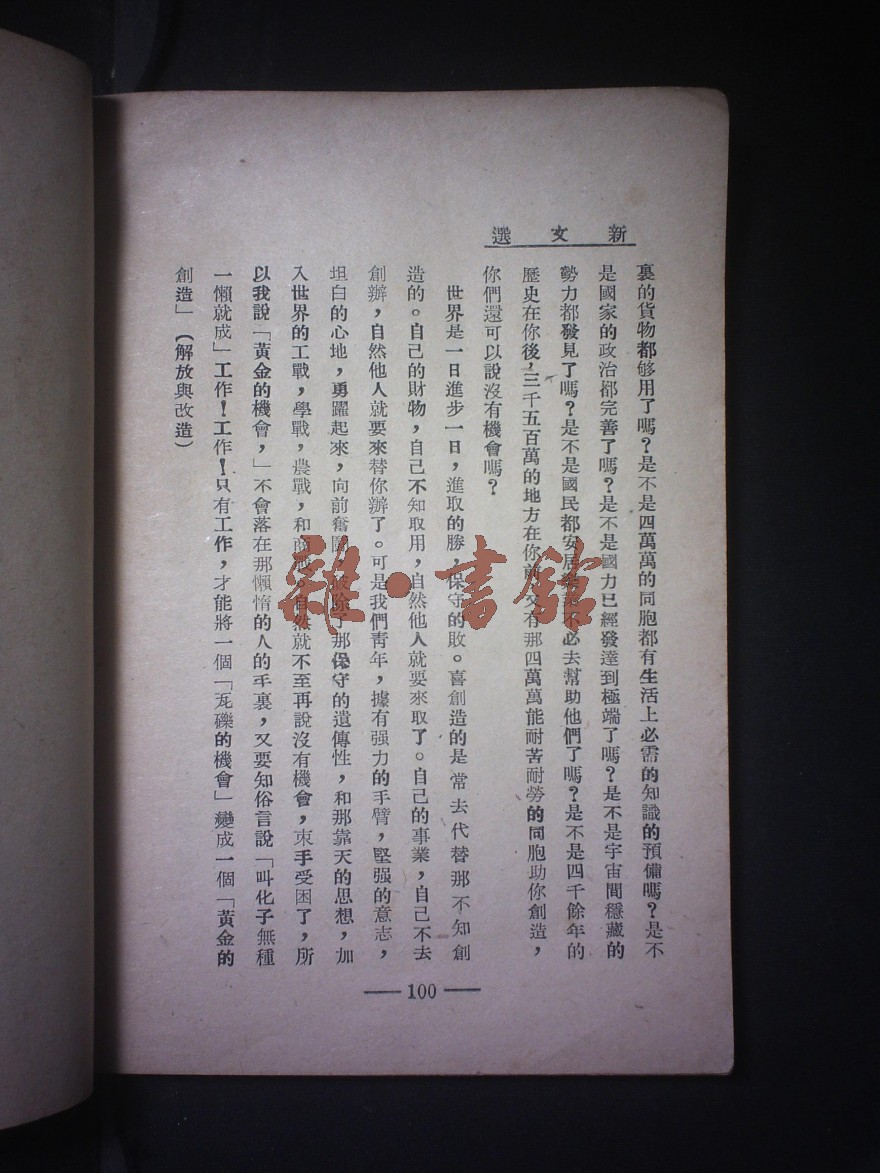 新文選
裏的貨物都够用了嗎？是不是四萬萬的同胞都有生活上必需的知識的預備嗎？是不
是國家的政治都完善了嗎？是不是國力已經發達到極端了嗎？是不是宇宙間穩藏的
勢力都發見了嗎？是不是國民都安居不必去幫助他們了嗎？是不是四千餘年的
歷史在你後，三千五百萬的地方在你前，又有那四萬萬能耐苦耐勞的同胞助你創造，
你們還可以說沒有機會嗎？
世界是一日進步一日，進取的勝，保守的敗。喜創造的是常去代替那不知創
造的。自己的財物，自己不知取用，自然他人就要來取了。自己的事業，自己不去
創辦，自然他人就要來替你辦了。可是我們靑年，據有强力的手臂，堅强的意志，
坦白的心地，勇躍起來，向前奮鬭，破除了那保守的遺傳性，和那靠天的思想，加
入世界的工戰，學戰，農戰，和商戰。自然就不至再說沒有機會，束手受困了，所
以我說「黃金的機會，」不會落在那懶惰的人的手裏，又要知俗言說「叫化子無種
一懶就成」工作！工作！只有工作，才能將一個「瓦礫的機會」變成一個「黃金的
創造」（解放與改造）
— 100 —
雜·書館